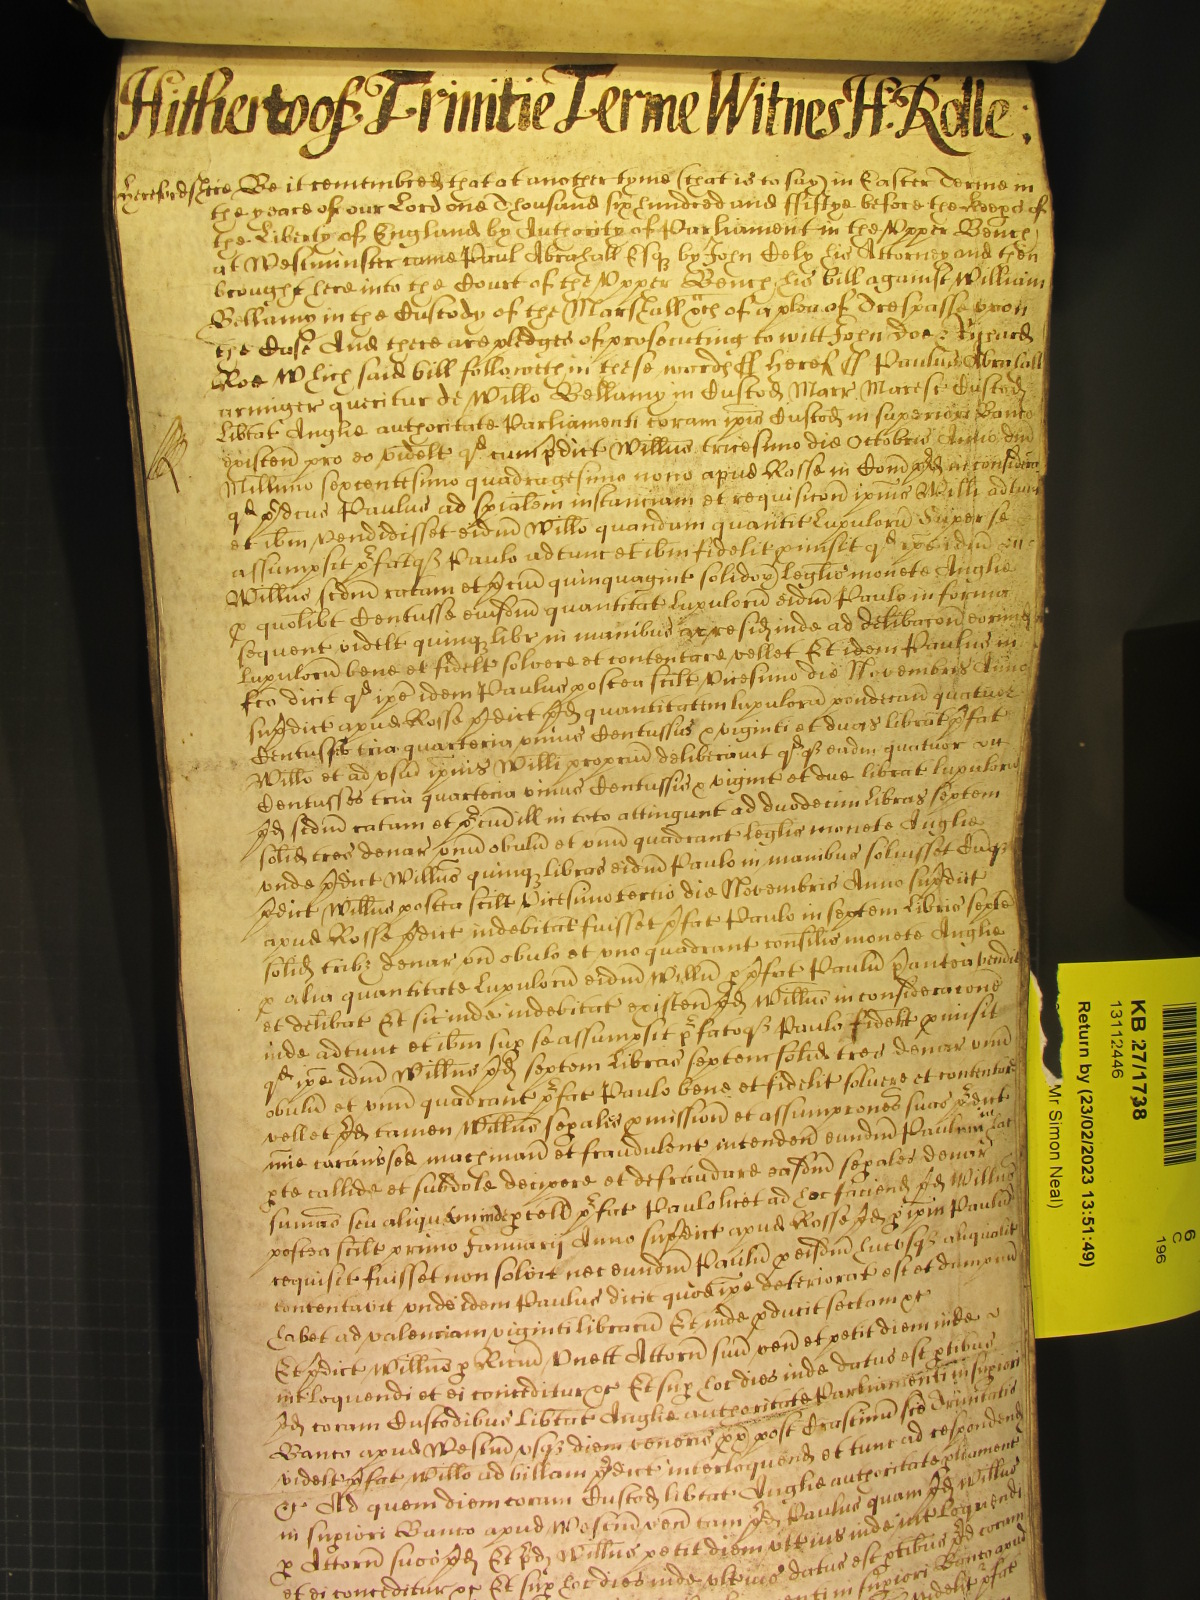 Hitherto of Trinitie Terme Witnes H: Rolle:
Herefordshire Be it remembred that at another tyme (that is to say) in Easter Terme in
the yeare of our Lord one Thousand six hundred and fiftye before the Keepers of
the Liberty of England by Authority of Parliament in the Upper Bench
at Westminster came Paul Abrahall Esq by John Bely his Attorney and then
brought here into the Court of the Upper Bench his bill against William
Bellamy in the Custody of the Marshall &c of a plea of Trespasse upon
the Case And there are pledges of prosecuting to witt John Doe & Richard
Roe Which said bill followeth in these words ss Heref ss Paulus Abrahall
armiger queritur de Willo Bellamy in Custod Marr Maresc Custod
Libtat Anglie authoritate Parliamenti coram ipis Custod in superiori Banco
existen pro eo videlt qd cum pdict Willus tricesimo die Octobris Anno dni
Millimo sexcentesimo quadragesimo nono apud Rosse in Com pd in consideracone
qd pdcus Paulus ad spialem instanciam et requisicon ipius Willi adtunc
et ibm vendidisset eidm Willo quandam quantit Lupulor Super se
assumpsit pfatoq Paulo adtunc et ibm fidelit pmisit qd ipe idm
Willus scdm ratam et pciu quinquagint solidor legalis monete Anglie
p quolibt Centusse eiusdm quantitat Lupulor eidm Paulo in forma
sequent videlt quinq libr in manibus et resid inde ad delibacon eorundm
Lupulor bene et fidelt solvere et contentare vellet Et idem Paulus in
fco dicit qd ipe idem Paulus postea scilt Vicesimo die Novembris Anno
supdict apud Rosse pdict pd quantitatem lupulor ponderan quatuor
Centusses tria quarteria unius Centussis & viginti et duas librat pfat
Willo et ad usu ipius Willi propriu deliberavit qdq eadm quatuor
Centusses tria quarteria unius Centussis & vigint et due librat lupulor
pd scdm ratam et pciu ill in toto attingunt ad duodecim libras septem
solid tres denar unu obulu et unu quadrant legalis monete Anglie
unde pdict Willus quinq libras eidm Paulo in manibus solvisset Cumq
pdict Willus postea scilt Vicesimo tertio die Novembris Anno supdict
apud Rosse pdict indebitat fuisset pfat Paulo in septem libris septem
solid trib denar un obulo et uno quadrant consilis monete Anglie
p alia quantitate Lupulor eidm Willo p pfat Paulu pantea vendit
et delibat Et sic inde indebitat existen pd Willus in consideracone
inde adtunc et ibm sup se assumpsit pfatoq Paulo fidelt pmisit
qd ipe idm Willus pd septem libras septem solid tres denar unu
obulu et unu quadrant pfat Paulo bene et fidelit solvere et contentare
vellet pd tamen Willus sepales pmission et assumpcones suas pdict
mie curans sed machinan et fraudulent intenden eundm Paulu in hac
pte callide et subdole decipere et defraudare easdm sepales denar
sumas seu aliquem inde pcell pfat Paulo licet ad hoc faciend pd Willus
postea scilt primo Januarij Anno supdict apud Rosse pd p ipm Paulu
requisit fuisset non solvit nec eundm Paulu p eisdm hucusq aliqualit
contentavit unde idem Paulus dicit quod ipe deteriorat est et dampnum
habet ad valenciam viginti librar Et inde pducit sectam &c
Et pdict Willus p Ricum Unett Attorn suu ven et petit diem inde
interloquendi et ei conceditur &c Et sup hoc dies inde datus est ptibus
pd coram Custodibus Libtat Anglie authoritate Parliamenti in supiori
Banco apud Westm usq diem veneris px post Crastinum sce Trinitatis
videlt pfat Willo ad billam pdict interloquend et tunc ad respondend
&c Ad quem diem coram Custod libtat Anglie authoritate pliamenti
in supiori Banco apud Westm ven tam pd Paulus quam pd Willus
p Attorn suos pd Et pd Willus petit diem ulterius inde interloquendi
et ei conceditur &c Et sup hoc dies inde ulterius datus est ptibus pd coram
in supiori Banco apud
videlit pfat
KB 27/1738
13112446
Return by (23/02/2023 13:51:49)
Mr Simon Neal)
6
C
196